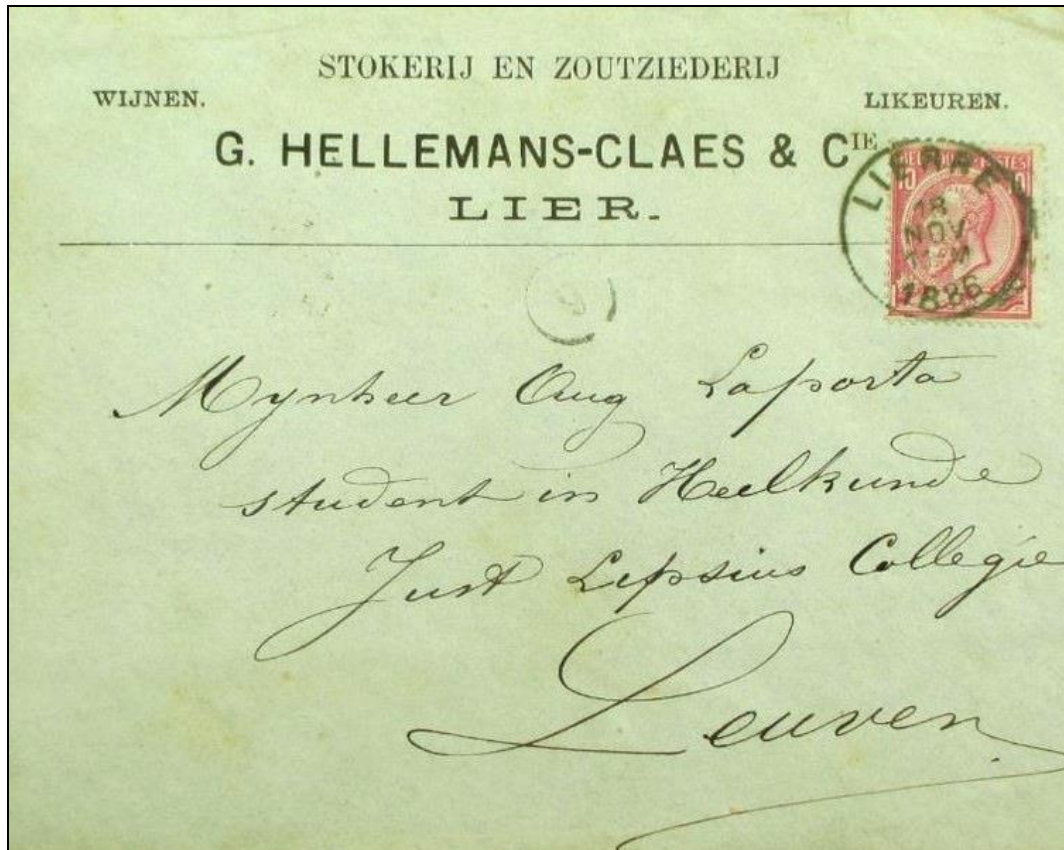 STOKERIJ EN ZOUTZIEDERIJ
WIJNEN. LIKEUREN.
G. HELLEMANS-CLAES & CIE
LIER.
LIERRE
18
NOV
1886
10
Mynheer Aug Laporta
student in Heelkunde
Just Lipsius Collegie
Leuven